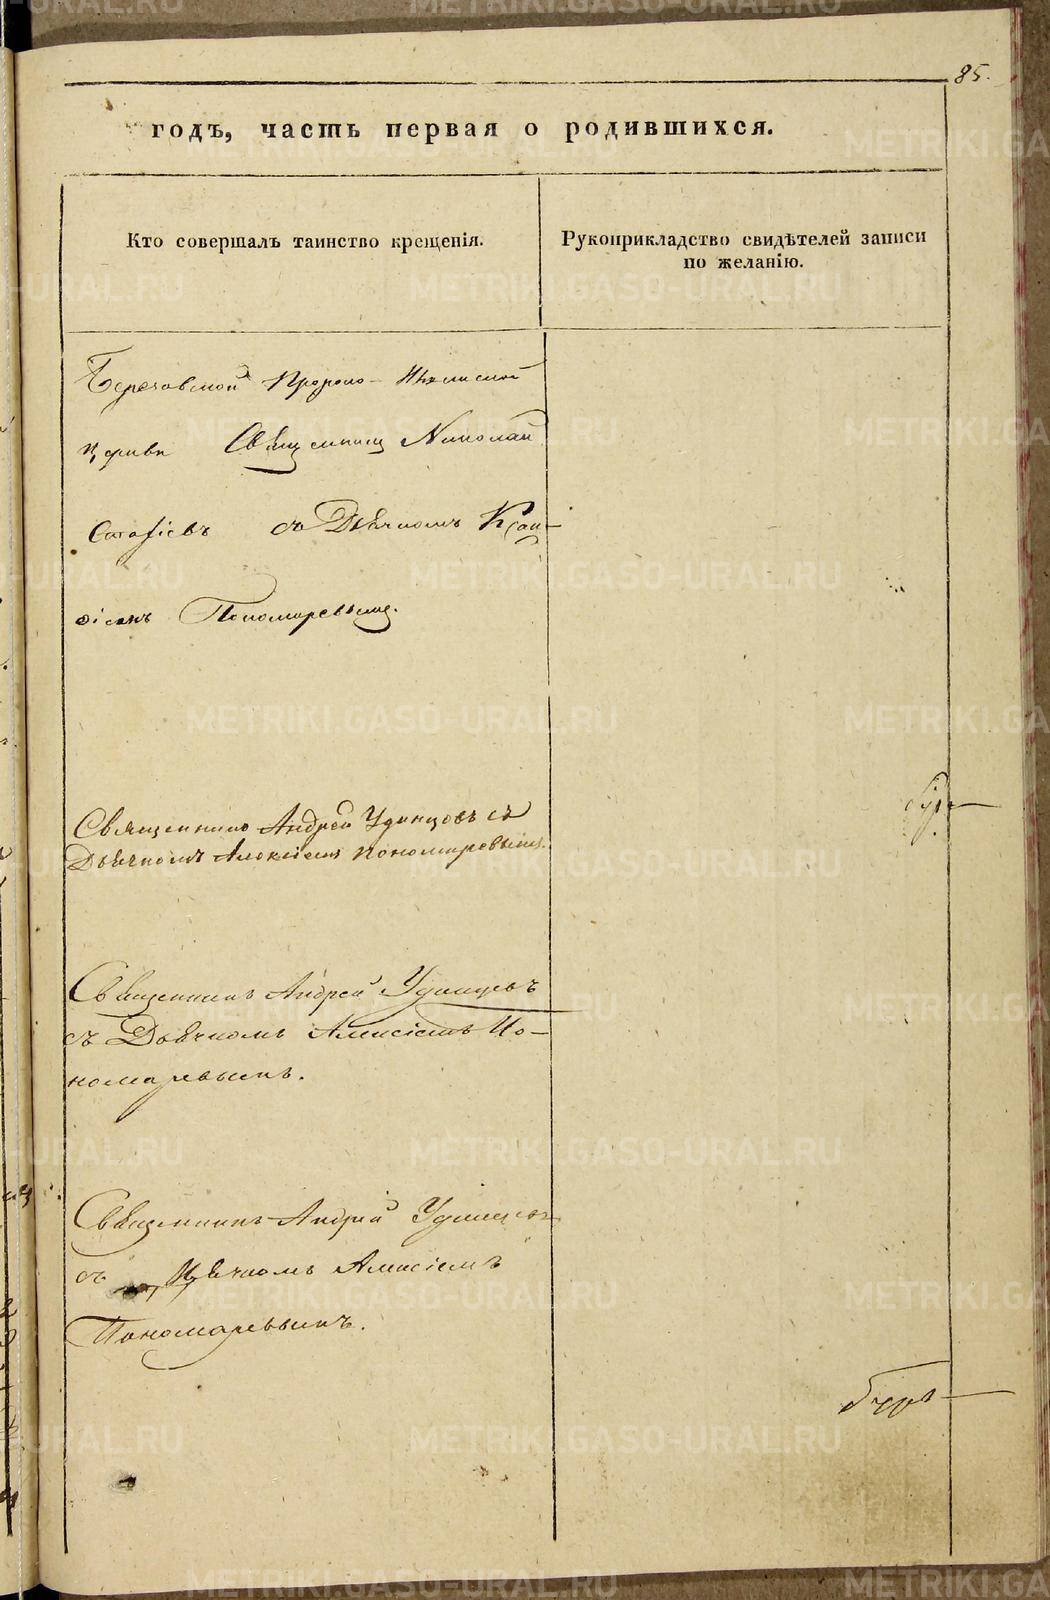 85.
годъ, часть первая о родившихся.
Кто совершалъ таинство крещенія.
Рукоприкладство свидѣтелей записи
по желанію.
Пророко-Ильинской
церкви Священникъ Николай
съ Дьячкомъ
Пономаревымъ.
Священникъ Андрей Удинцовъ съ
Дьячкомъ Алексіемъ Пономаревымъ.
Священникъ Андрей Удинцовъ
съ Дьячкомъ Алексіемъ По-
номаревымъ.
Священникъ Андрей Удинцовъ
съ Дьячкомъ Алексіемъ
Пономаревымъ.
METRIKI.GASO-URAL.RU